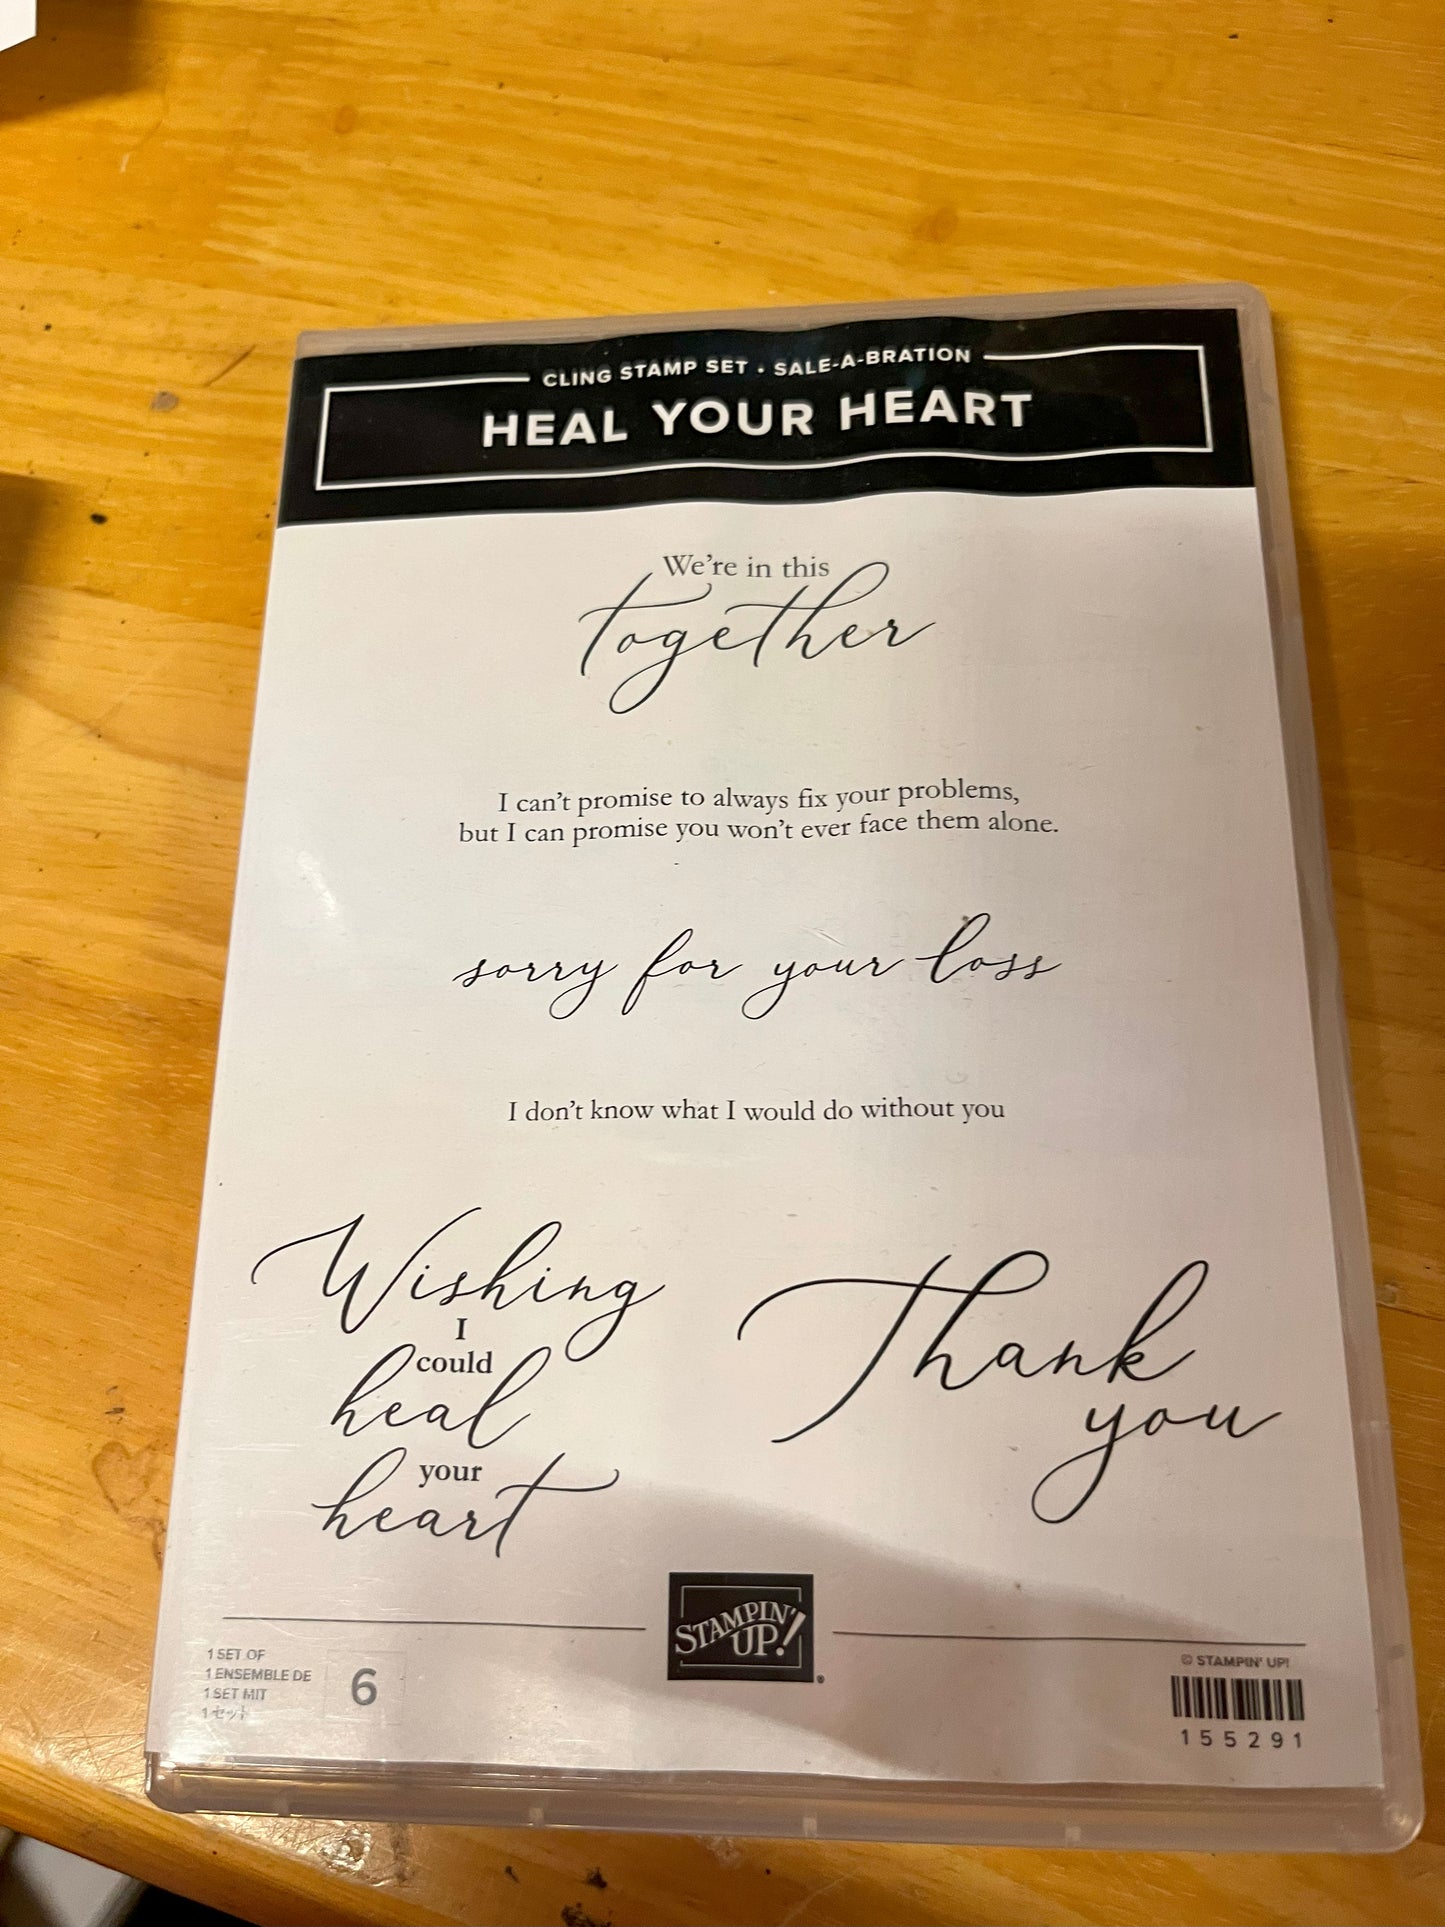 CLING STAMP SET • SALE-A-BRATION
HEAL YOUR HEART
We're in this
together
I can't promise to always fix your problems,
but I can promise you won't ever face them alone.
sorry for your loss
I don't know what I would do without you
Wishing
I
could
heal
your
heart
Thank
you
STAMPIN'
UP!®
1 SET OF
1 ENSEMBLE DE
1 SET MIT
1セット
6
© STAMPIN' UP!
155291